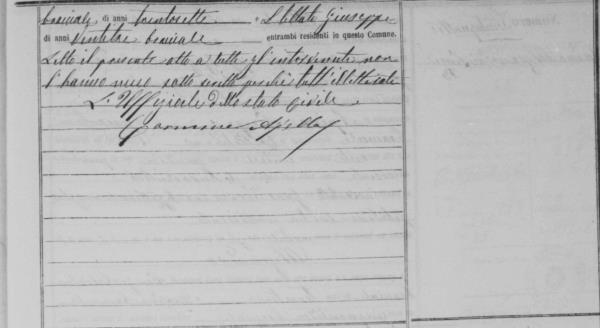 bracciale di anni trentasette e Abbate Giuseppe
di anni Ventitre bracciale entrambi residenti in questo Comune.
Letto il presente atto a tutti gl'intervenuti non
l'hanno meco sottoscritto perché tutti illetterati
L'Uffiziale dello stato Civile
Carmine